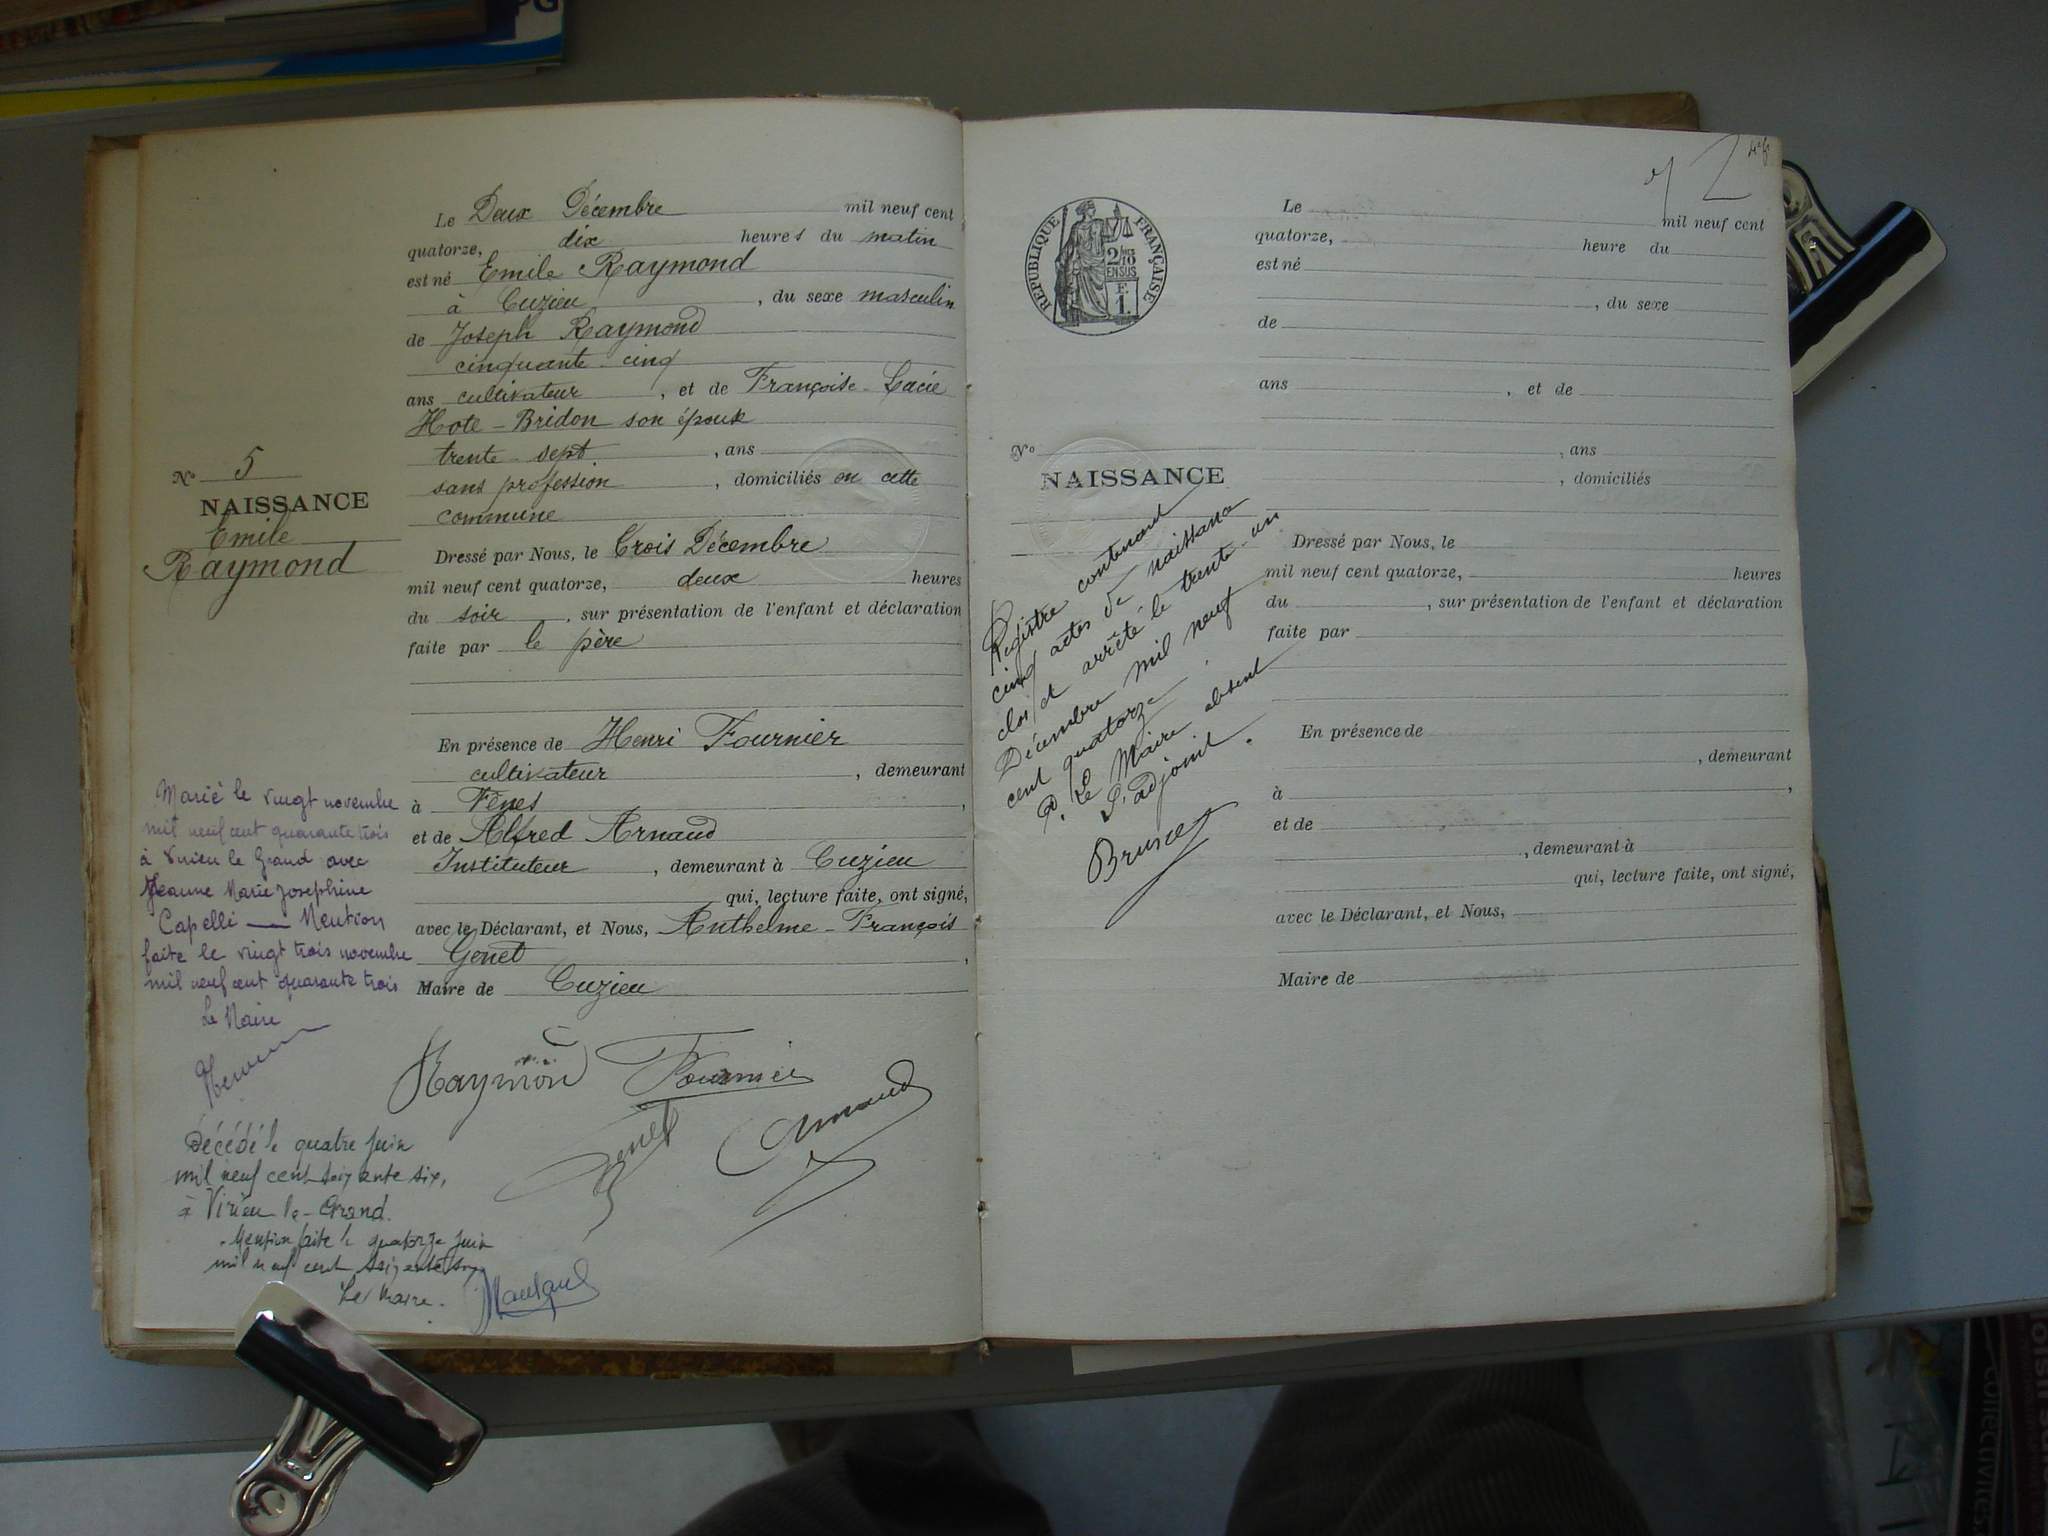 PG
Le Deux Décembre mil neuf cent
quatorze, dix heures du matin
est né Emile Raymond
à Cuzieu, du sexe masculin
de Joseph Raymond
cinquante-cinq
ans cultivateur, et de Françoise-Lucie
Hote-Bridon son époux
trente-sept, ans
sans profession, domiciliés en cette
commune
Nº 5
NAISSANCE
Emile
Raymond
Dressé par Nous, le Trois Décembre
mil neuf cent quatorze, deux heures
du soir, sur présentation de l'enfant et déclaration
faite par le père
En présence de Henri Fournier
cultivateur, demeurant
à Fênes,
et de Alfred Arnaud
Instituteur, demeurant à Cuzieu
qui, lecture faite, ont signé,
avec le Déclarant, et Nous, Anthelme-François
Genet,
Maire de Cuzieu
Raymond Fournier
Genet Arnaud
Marié le vingt novembre
mil neuf cent quarante trois
à Virieu le Grand avec
Jeanne Marie Josephine
Capelli — Mention
faite le vingt trois novembre
mil neuf cent quarante trois
Le Maire
Décédé le quatre juin
mil neuf cent soixante six,
à Virieu-le-Grand.
Mention faite le quatorze juin
mil neuf cent soixante six
Le Maire.
2
RÉPUBLIQUE FRANÇAISE
2/10
EN SUS
F.
1.
Le mil neuf cent
quatorze, heure du
est né
, du sexe
de
ans, et de
Nº, ans
NAISSANCE
, domiciliés
Registre contenant
cinq actes de naissance
clos et arrêté le trente-un
Décembre mil neuf
cent quatorze
P. Le Maire absent
L'adjoint.
Dressé par Nous, le
mil neuf cent quatorze, heures
du, sur présentation de l'enfant et déclaration
faite par
En présence de
, demeurant
à,
et de
, demeurant à
qui, lecture faite, ont signé,
avec le Déclarant, et Nous,
Maire de